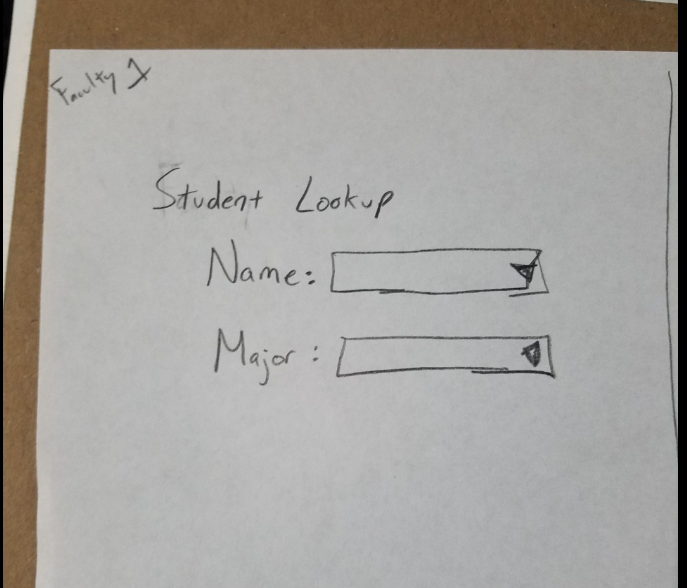 Faculty 1
Student Lookup
Name:
Major: